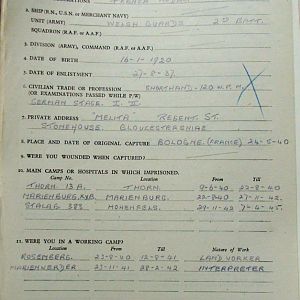 2. SHIP (R.N., U.S.N. or MERCHANT NAVY)
UNIT (ARMY) WELSH GUARDS 2ND BATT.
SQUADRON (R.A.F. or A.A.F.)
3. DIVISION (ARMY), COMMAND (R.A.F. or A.A.F.)
4. DATE OF BIRTH 16-1-1920
5. DATE OF ENLISTMENT 27-8-37.
6. CIVILIAN TRADE OR PROFESSION SHORTHAND. 120 W.P.M.
(OR EXAMINATIONS PASSED WHILE P/W)
GERMAN STAGE. I. II
7. PRIVATE ADDRESS "MELITA" REGENT ST.
STONEHOUSE GLOUCESTERSHIRE
8. PLACE AND DATE OF ORIGINAL CAPTURE BOLOGNE (FRANCE) 24-5-40
9. WERE YOU WOUNDED WHEN CAPTURED?
10. MAIN CAMPS OR HOSPITALS IN WHICH IMPRISONED.
Camp No. Location From To
THORN. 13 A. THORN. 9-6-40 22-8-40
MARIENBURG. MARIENBURG 22-8-40 27-11-42.
STALAG 383. HOHENFELS. 29-11-42 7-4-45.
11. WERE YOU IN A WORKING CAMP?
Location From To Nature of Work
ROSENBERG. 23-8-40 12-8-41 LAND WORKER
MARIENWERDER 23-11-41 28-2-42 INTERPRETER